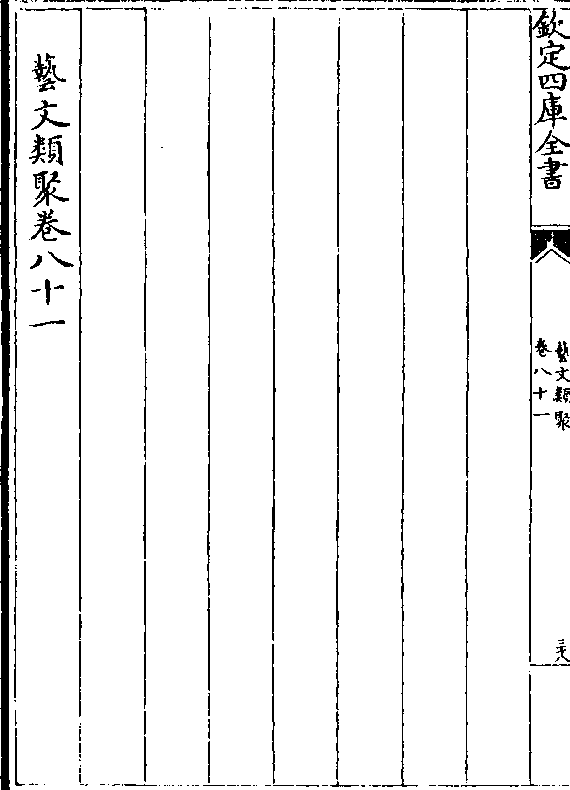 欽定四庫全書
藝文類聚
卷八十一
三十八
藝文類聚卷八十一